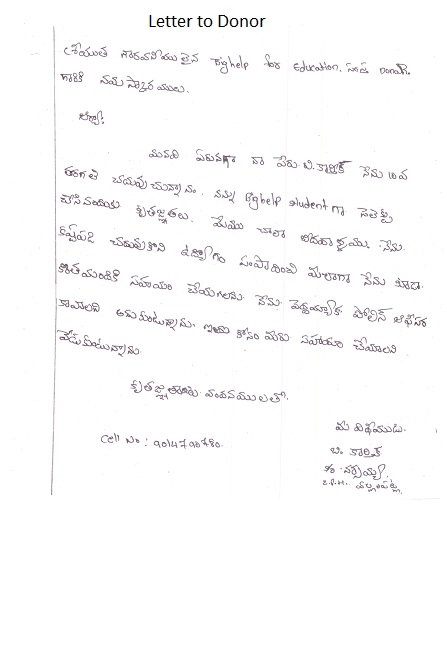 Letter to Donor
శ్రీయుత గౌరవనీయులైన Bighelp for Education. సంస్థ Donor.
గారికి నమస్కారములు.
మనవి ఏమనగా నా పేరు. బి. కార్తీక్ నేను 10వ
తరగతి చదువుచున్నాను. నన్ను Bighelp student గా సెలెక్ట్
చేసినందుకు కృతజ్ఞతలు. మేము చాలా నేను.
కష్టపడి చదువుకొని ఉద్యోగం సంపాదించి మీలాగా నేను కూడా.
కొంతమందికి సహాయం చేయగలను. నేను పెద్దయ్యాక పోలీస్ ఆఫీసర్
కావాలని అనుకుంటున్నాను. ఇందు కోసం మీరు సహాయం చేయాలని
వేడుకుంటున్నాను.
కృతజ్ఞతలు వందనములతో.
Cell No: 9014790780.
మీ విధేయుడు.
బి. కార్తీక్
Z.P.H.